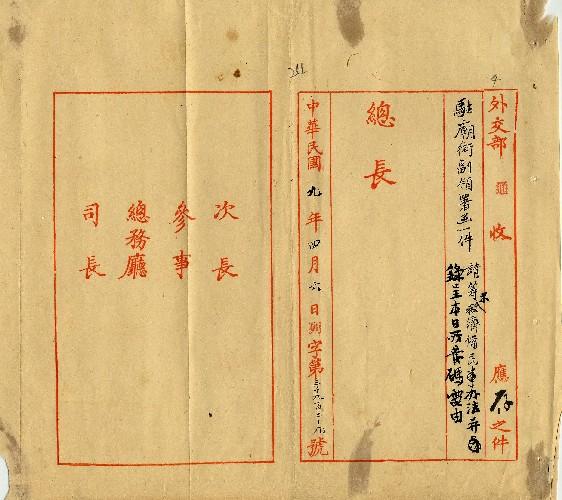 外交部 收 應存之件
駐廟街副領署 一件
請籌 救濟 民事办法并
錄呈本日所發碼電由
總長
中華民國九年四月六日 字第 號
次長
參事
總務廳
司長